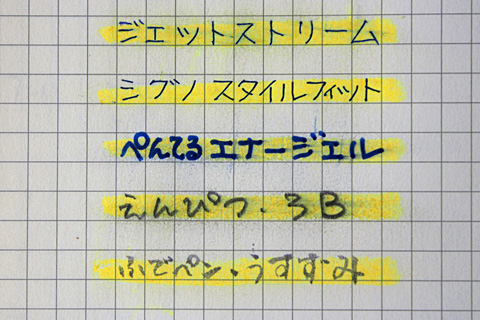 ジェットストリーム
シグノ スタイルフィット
ぺんてるエナージェル
えんぴつ.3B
ふでペン.うすずみ